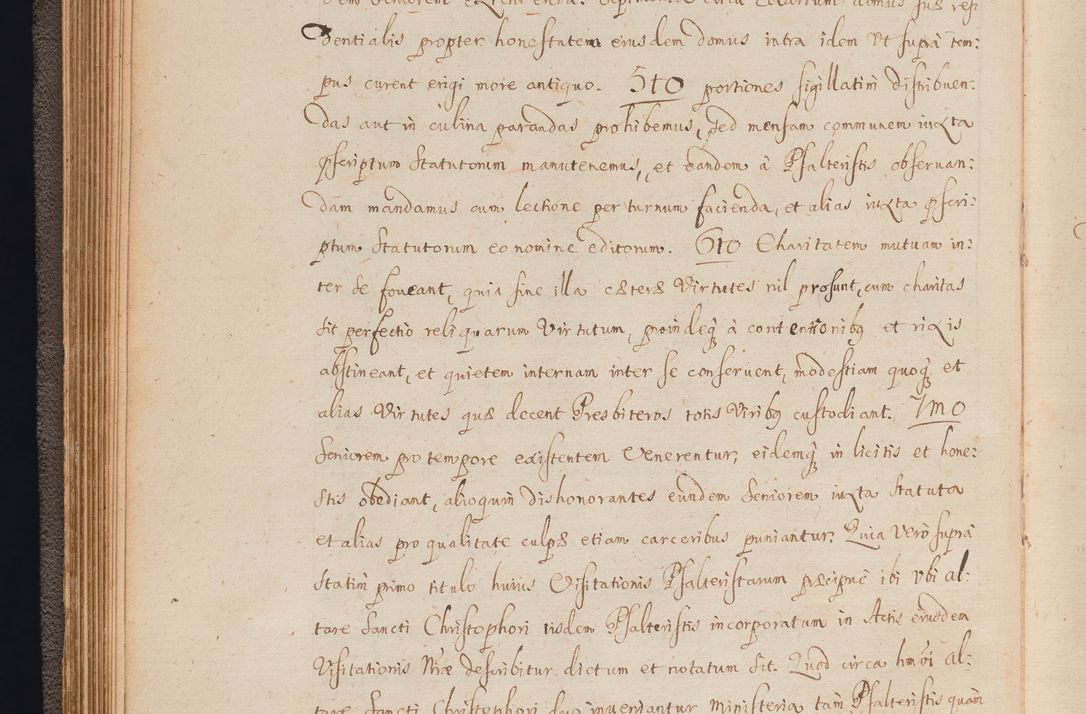 dentialis propter honestatem eiusdem domus intra idem ut suprà tem:
pus curent erigi more antiquo. 5to portiones sigillatim distribuen:
das aut in culina parandas prohibemus, sed mensam communem iuxta
pscriptum Statutorum manutenemus, et eandem à Psalteristis obseruan:
dam mandamus cum lectione per turnum facienda, et alias iuxta pscri:
ptum Statutorum eo nomine editorum. 6to Charitatem mutuam in:
ter se foueant, quia sine illa cæteræ Virtutes nil prosunt, cum charitas
sit perfectio reliquarum Virtutum, proindeq; à contentionib9 et rixis
abstineant, et quietem internam inter se conseruent, modestiam quoq; et
alias Virtutes quæ decent Presbiteros totis Virib9 custodiant. 7mo
Seniorem pro tempore existentem Venerentur, eidemq; in licitis et hone:
stis obediant, alioquin dishonorantes eundem Seniorem iuxta Statuta
et alias pro qualitate culpæ etiam carceribus puniantur. Quia Verò suprà
statim primo titulo huius Visitationis Psalteristarum præcipuè ibi ubi al:
tare Sancti Christophori iisdem Psalteristis incorporatum in Actis eiusdem
Visitationis Nræ describitur dictum et notatum sit. Quod circa hmoi al:
tare Sancti Christophori duo inueniantur Ministeria tam Psalteristis quam